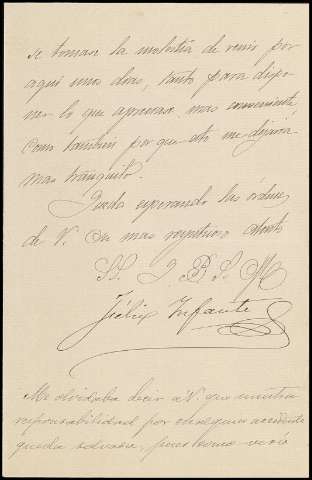 se tomase la molestia de venir por
aqui unos dias, tanto para dispo-
ner lo que aprecie mas conveniente,
como tambien por que esto me dejára
mas tranquilo.
Queda esperando las órdenes
de V. su mas respetuoso atento
S. S. Q. B. S. M.
Felix Infante
Me olvidaba decir á V. que nuestra
responsabilidad por cualquier accidente
queda salvada, pues como verá